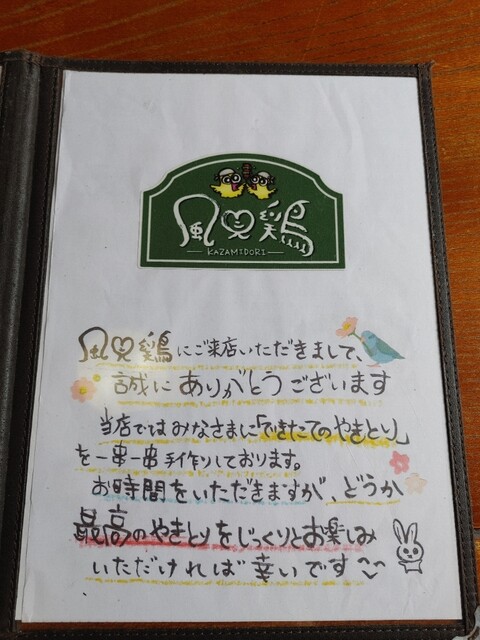 風見鶏
KAZAMIDORI
風見鶏にご来店いただきまして、
誠にありがとうございます
当店ではみなさまに「できたてのやきとり」
を一串一串手作りしております。
お時間をいただきますが、どうか
最高のやきとりをじっくりとお楽しみ
いただければ幸いです